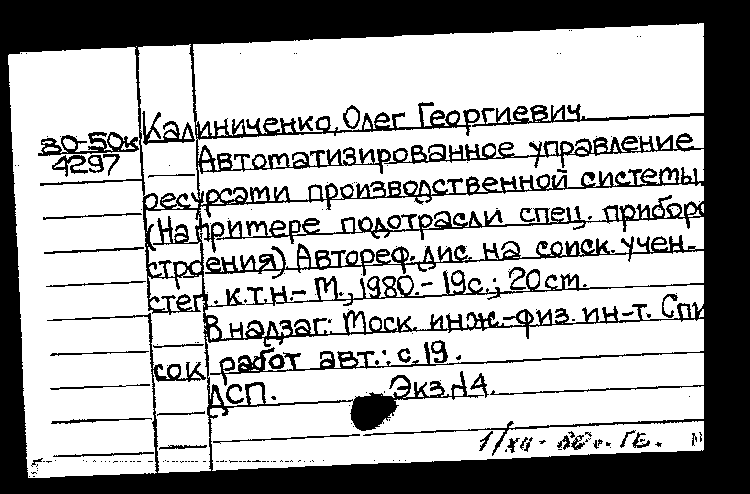 80-50к
4297
Калиниченко, Олег Георгиевич.
Автоматизированное управление
ресурсами производственной системы.
(На примере подотрасли спец. приборо
строения) Автореф. дис. на соиск. учен.
степ. к.т.н.- М., 1980.- 19с.; 20 cm.
В надзаг: Моск. инж.-физ. ин-т. Спи
сок работ авт.: с.19.
ДСП. Экз. №4.
1/XII-80 г. ГЕ.